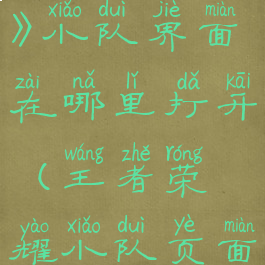 xiǎo duì jiè miàn
》小队界面
zài nǎ lǐ dǎ kāi
在哪里打开
wáng zhě róng
（王者荣
yào xiǎo duì yè miàn
耀小队页面